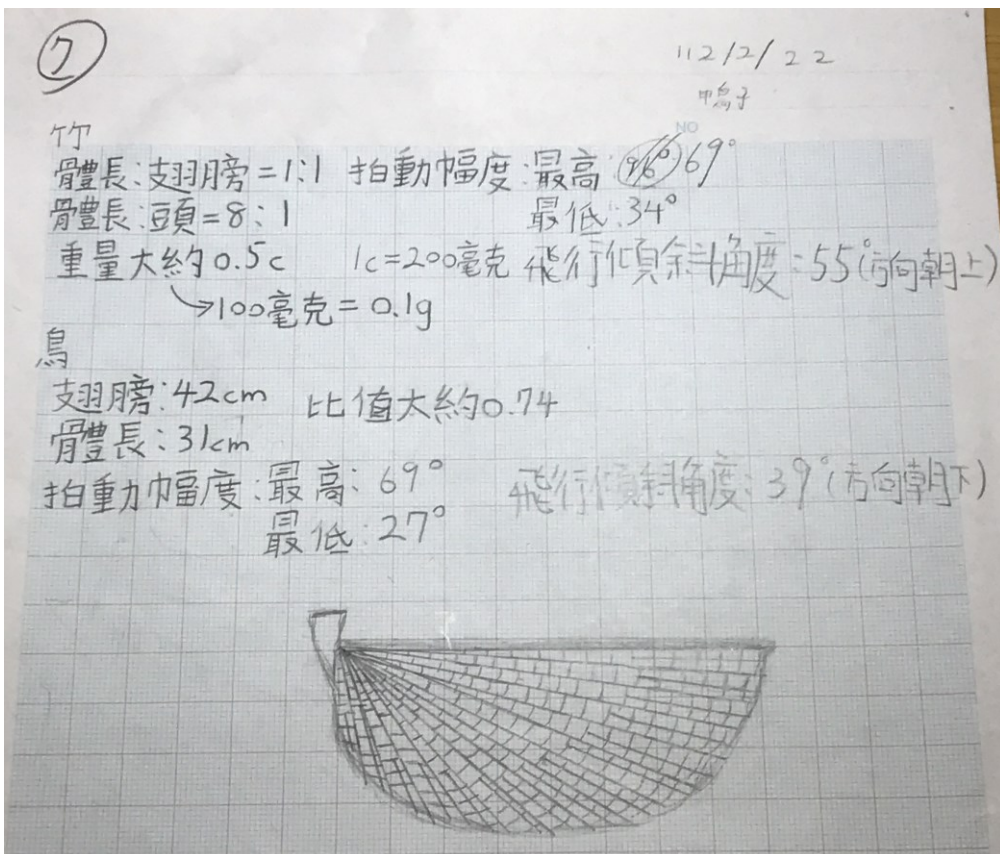 7
112/2/22
鴨子
NO
竹
骨豊長:翅膀=1:1 拍動幅度:最高: 69°
骨豊長:頭=8:1 最低:34°
重量大約0.5c 1c=200毫克 飛行傾斜角度:55°(方向朝上)
→100毫克=0.1g
鳥
翅膀:42cm 比值大約0.74
骨豊長:31cm
拍動幅度:最高:69° 飛行傾斜角度:39°(方向朝下)
最低:27°